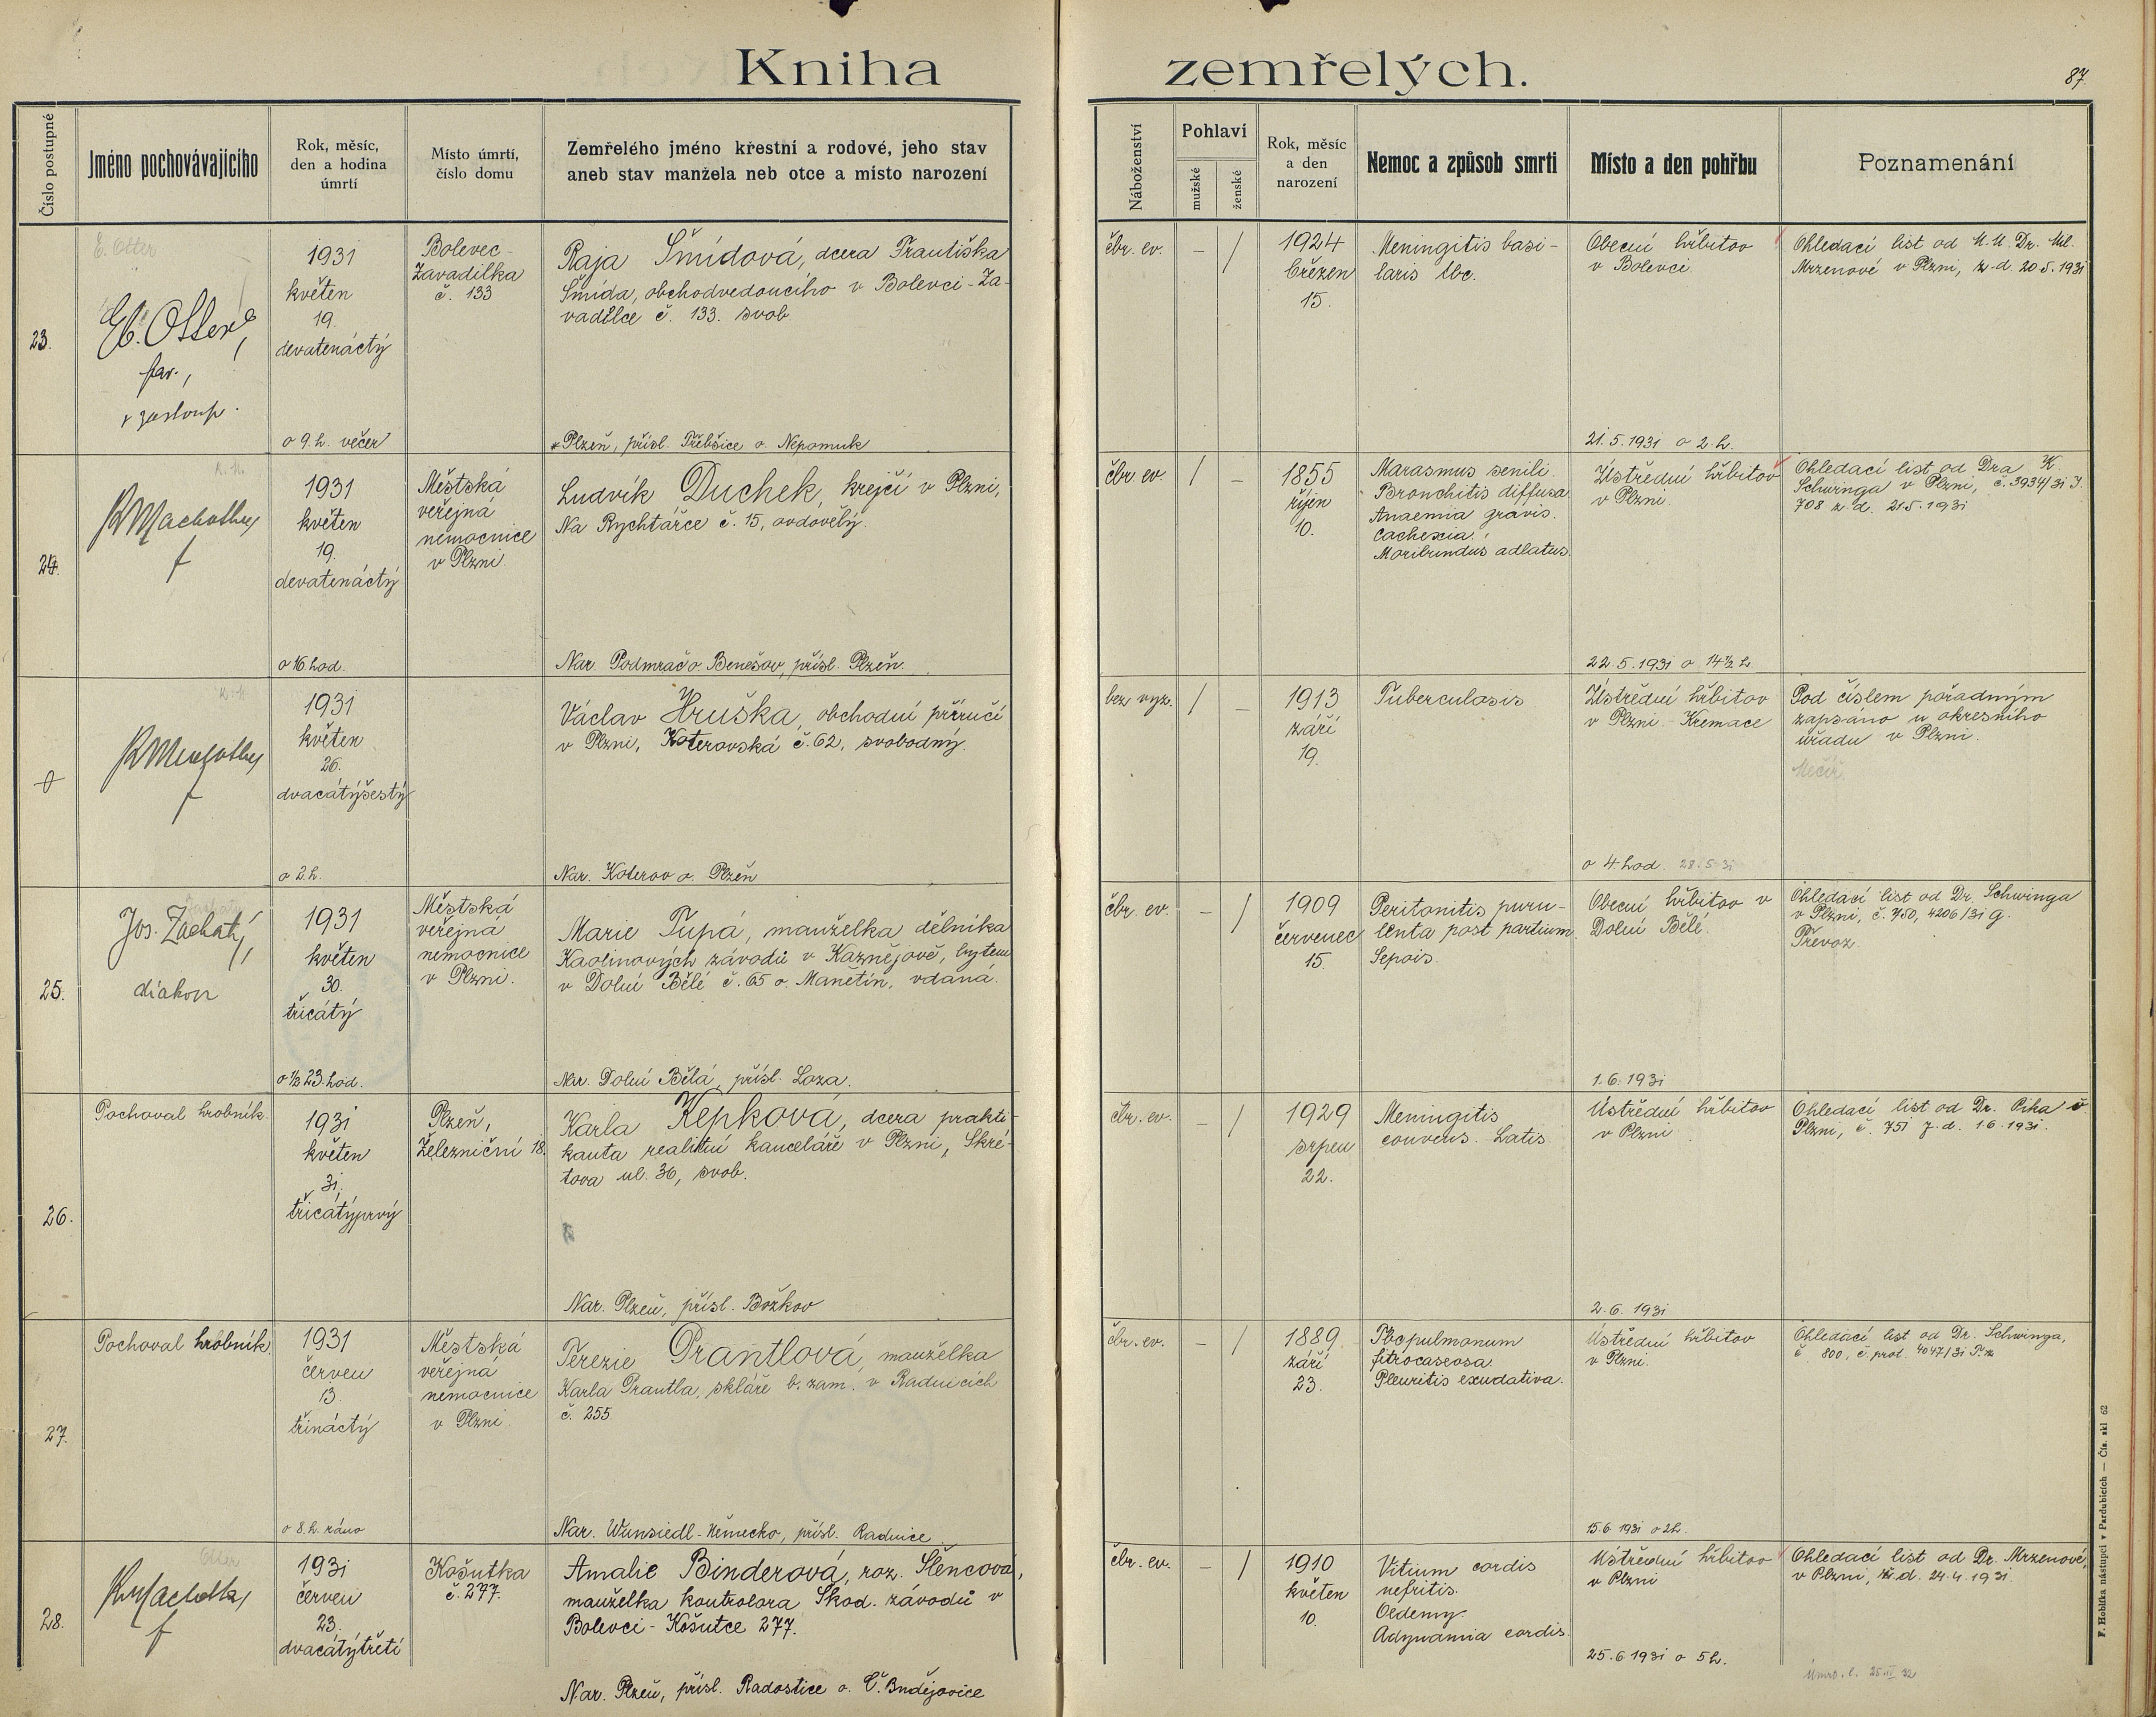 Kniha zemřelých.
87
Číslo postupné
Jméno pochovávajícího
Rok, měsíc,
den a hodina
úmrtí
Místo úmrtí,
číslo domu
Zemřelého jméno křestní a rodové, jeho stav
aneb stav manžela neb otce a místo narození
Náboženství
Pohlaví
mužské
ženské
Rok, měsíc
a den
narození
Nemoc a způsob smrti
Místo a den pohřbu
Poznamenání
23.
E. Otter
Otter,
far.,
v zastoup.
1931
květen
19.
devatenáctý
o 9. h. večer
Bolevec-
Zavadilka
č. 133
Raja Šmídová, dcera Františka
Šmída, obchodvedoucího v Bolevci-Za-
vadilce č. 133. svob.
* Plzeň, přísl. Třebšice o. Nepomuk
čbr. ev.
–
/
1924
březen
15.
Meningitis basi-
laris tbc.
Obecní hřbitov
v Bolevci.
21.5.1931 o 2 h.
Ohledací list od M.U.Dr. Mil.
Mrzenové v Plzni, z. d. 20.5.1931
24.
K. M.
Machotka
f
1931
květen
19.
devatenáctý
o 16 hod.
Městská
veřejná
nemocnice
v Plzni.
Ludvík Duchek, krejčí v Plzni,
Na Rychtářce č. 15, ovdovělý.
Nar. Podmrač o. Benešov, přísl. Plzeň.
čbr ev.
/
–
1855
říjen
10.
Marasmus senili.
Bronchitis diffusa
Anaemia gravis.
Cachexia.
Moribundus adlatus.
Ústřední hřbitov
v Plzni.
22.5.1931 o 14½ h.
Ohledací list od Dra K.
Schwinga v Plzni, č. 3934/31 J.
708 z d. 21.5.1931
0
K. M.
Machotka
f
1931
květen
26.
dvacátýšestý
o 2 h.
Václav Hruška, obchodní příručí
v Plzni, Koterovská č. 62, svobodný.
Nar. Koterov o. Plzeň
bez vyz.
/
–
1913
září
19.
Tuberculosis
Ústřední hřbitov
v Plzni. - Kremace
o 4 hod. 28.5.31
Pod číslem pořadným
zapsáno u okresního
úřadu v Plzni.
25.
Jos. Zachatý,
diakon
1931
květen
30.
třicátý
o ½ 23 hod.
Městská
veřejná
nemocnice
v Plzni.
Marie Tupá, manželka dělníka
Kaolinových závodů v Kaznějově, bytem
v Dolní Bělé č. 65 o. Manětín, vdaná.
Nar. Dolní Bělá, přísl. Loza.
čbr. ev.
–
/
1909
červenec
15.
Peritonitis puru-
lenta post partium.
Sepsis.
Obecní hřbitov v
Dolní Bělé.
1.6.1931
Ohledací list od Dr. Schwinga
v Plzni, č. 750, 4206/31 G.
Převoz.
26.
Pochoval hrobník.
1931
květen
31.
třicátýprvý
Plzeň,
Železniční 18.
Karla Kepková, dcera prakti-
kanta realitní kanceláře v Plzni, Skré-
tova ul. 36, svob.
Nar. Plzeň, přísl. Božkov
čbr. ev.
–
/
1929
srpen
22.
Meningitis
convens. Latis.
Ústřední hřbitov
v Plzni
2.6.1931
Ohledací list od Dr. Pika v
Plzni, č. 751 z. d. 1.6.1931.
27.
Pochoval hrobník
1931
červen
13.
třináctý
o 8. h. ráno
Městská
veřejná
nemocnice
v Plzni.
Terezie Prantlová, manželka
Karla Prantla, skláře b. zam. v Radnicích
č. 255.
Nar. Wunsiedl - Německo, přísl. Radnice.
čbr. ev.
–
/
1889
září
23.
Tbc pulmonum
fitrocaseosa.
Pleuritis exudativa.
Ústřední hřbitov
v Plzni.
15.6 1931 o 2h.
Ohledací list od Dr. Schwinga,
č. 800, č. prot. 4047/31
28.
Otter
Machotka
f
1931
červen
23.
dvacátýtřetí
Košutka
č. 277.
Amalie Binderová, roz. Šlencova,
manželka kontrolora Škod. závodů v
Bolevci - Košutce 277.
Nar. Plzeň, přísl. Radostice o. Č. Budějovice
čbr. ev.
–
/
1910
květen
10.
Vitium cordis
nefritis.
Oedemy.
Adynamia cordis.
Ústřední hřbitov
v Plzni
25.6 1931 o 5 h.
Ohledací list od Dr. Mrzenové,
v Plzni, z. d. 24.4.1931.
F. Hoblíka nástupci v Pardubicích — Čís. skl 62